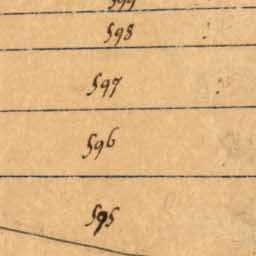 599
598
597
596
595